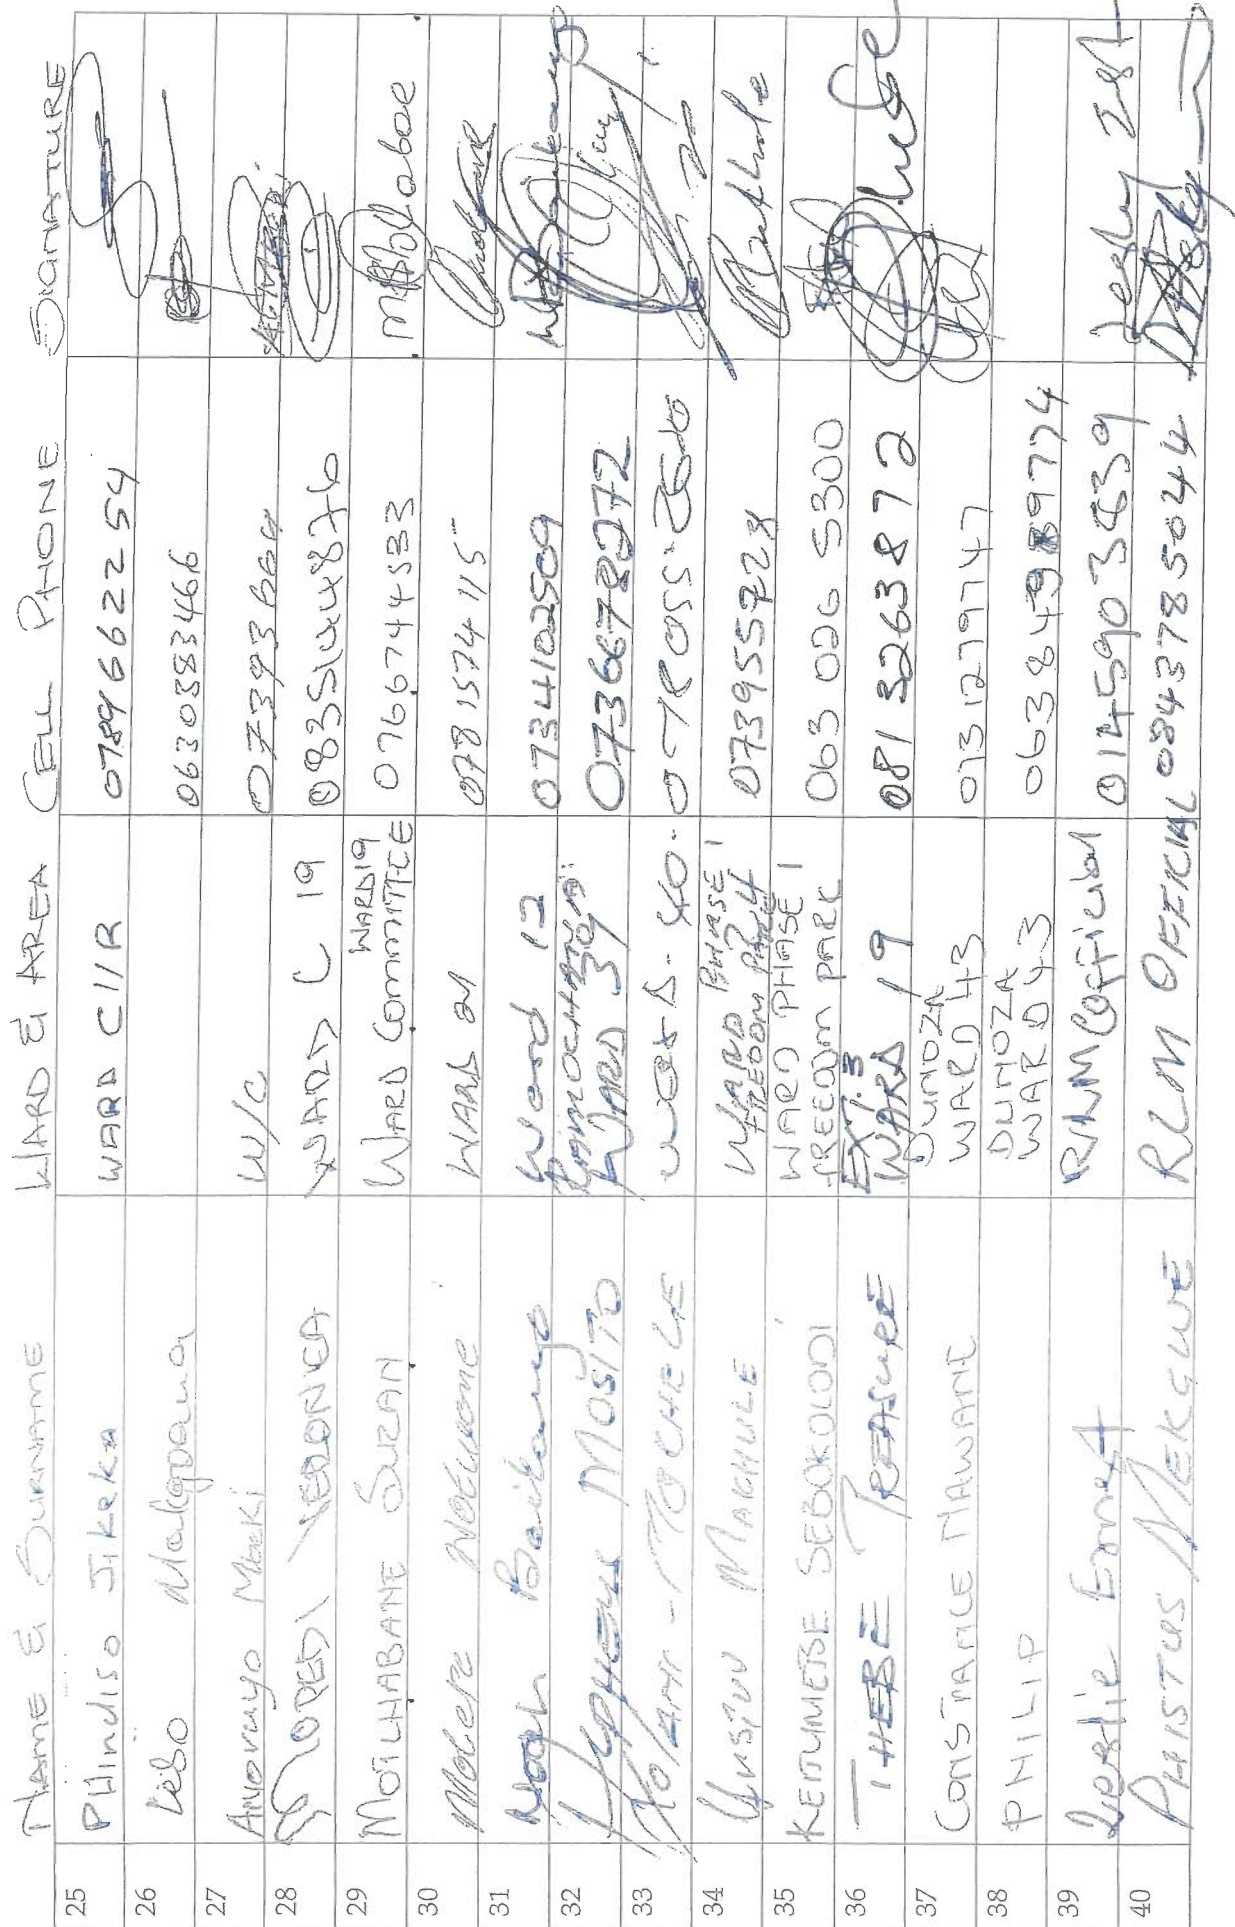 NAME & SURNAME WARD & AREA CELL PHONE SIGNASTURE
25 PHindiso Jikeka WARD Cllr 0789662254
26 Lebo Makgoana 0630383466
27 Anovuyo Mbeki W/C
28 VERONICA WARD C 19
29 MOTLHABANE SUZAN WARD 19 COMMITTEE 0766744533 Motlhabae
30 WARD 21 0781574115
31 Noah Baikang Ward 12 0734102509
32 MOSITO WARD 39 0736678272
33 XOLANI - MOCHELE WARD. 40.
34 MACHULE WARD PHASE 1 FREEDOM PARK 0739559228
35 KEITUMETSE SEBOKOLODI WARD PHASE 1 FREEDOM PARK 063 026 5300
36 THEBE TREASURE EXT. 3 WARD 19 081 3263872
37 CONSTANCE MAWANE DUNOZA WARD 43 0731279747
38 PHILIP DUNOZA WARD 43
39 Leslie Ernest RLM Official 0145903839
40 PHISTUS MEKGWE RLM OFFICIAL 0843785044